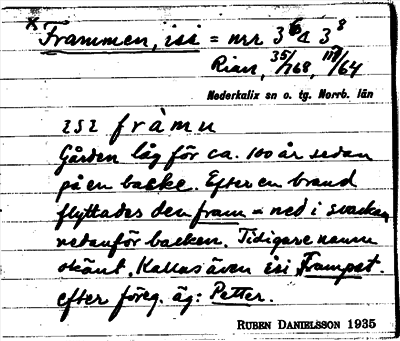 *Frammen, isi = nrr 3⁶ & 3⁸
Rian, 35/768, 117/64
Nederkalix sn o. tg. Norrb. län
ISI fràmn
Gården låg för ca. 100 år sedan
på en backe. Efter en brand
flyttades den fram = ned i svackan
nedanför backen. Tidigare namn
okänt. Kallas även isi Frampet.
efter föreg. äg: Petter.
RUBEN DANIELSSON 1935